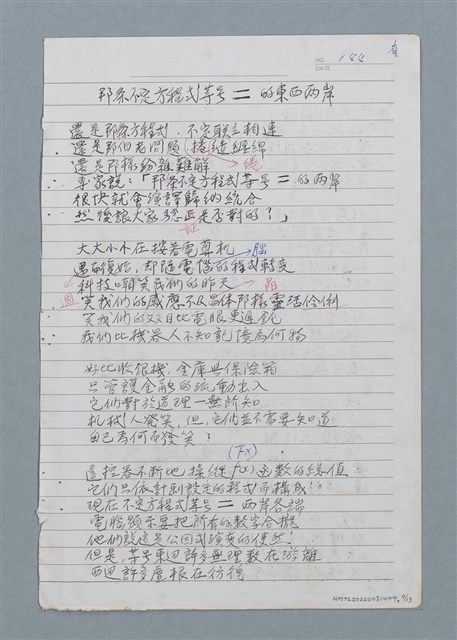 NO. 144
DATE
那条不定方程式等号二的東西两岸
還是那条方程式，不定联立相連
還是那個老問題 捲繾纏綿
綣
還是那樣紛雜難解
專家說：「那条不定方程式等号二的两岸
很快就會演譯歸納統合
然後讓大家 是否對的？」
証
大大小小在按着電算机
腦
週而復始，却隨電惱的程式轉变
科技嘲笑我們的昨天
過
笑我們的感應不及晶体那樣靈活伶俐
笑我們的双目比電眼更遲鈍
我們比機器人不知記憶為何物
好比收銀機，金庫與保險箱
只管護金融的流動出入
它們對於道理一無所知
机械人發笑，但，它們並不需要知道
自己為何而發笑？
(Fx)
遙控器不断地操縱 f(x) 函数的總值
它們只依計劃設定的程式而構成！
現在不定方程式等号二 两岸各端
電腦顯示要把所有的数字合攏
他們說這是公因式演变的使然！
但是，等号東因許多無理数在游離
西邊許多虛根在彷徨
NMTL20220031444. 9/13